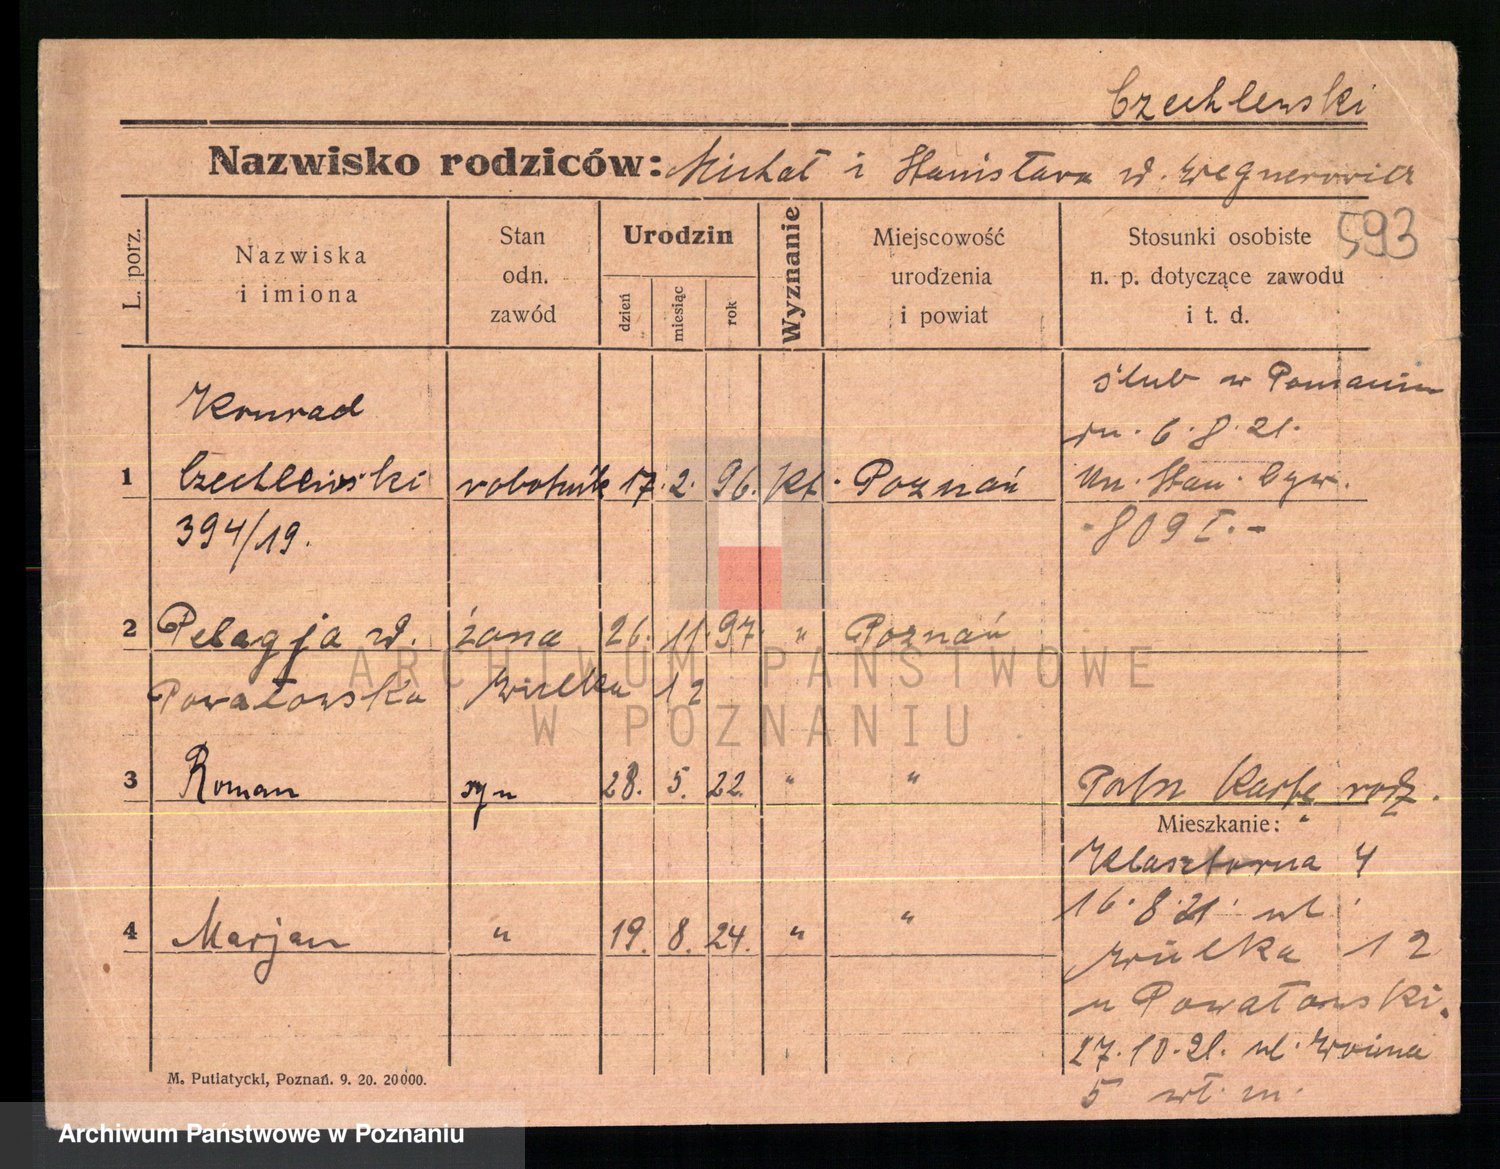 Czechlewski
Nazwisko rodziców: Michał i Stanisława z d. Wegnerowicz
593
L. porz.
Nazwiska
i imiona
Stan
odn.
zawód
Urodzin
dzień
miesiąc
rok
Wyznanie
Miejscowość
urodzenia
i powiat
Stosunki osobiste
n. p. dotyczące zawodu
i t. d.
ślub w Poznaniu
dn. 6.8.21.
Un. Stan. Cyw.
809 I.-
Konrad
1 Czechlewski robotnik 17. 2. 96. kt. Poznań
394/19.
2 Pelagja z d. żona 26. 11. 97. " Poznań
Powałowska Wielka 12
3 Roman syn 28. 5. 22. " "
4 Marjan " 19. 8. 24. " "
Patrz Kartę rodz.
Mieszkanie:
Klasztorna 4
16.8.21. ul.
Wielka 12
u Powałowski.
27.10.21. ul.
5 wł. m.
M. Putiatycki, Poznań. 9. 20. 20000.
ARCHIWUM PAŃSTWOWE
W POZNANIU
Archiwum Państwowe w Poznaniu